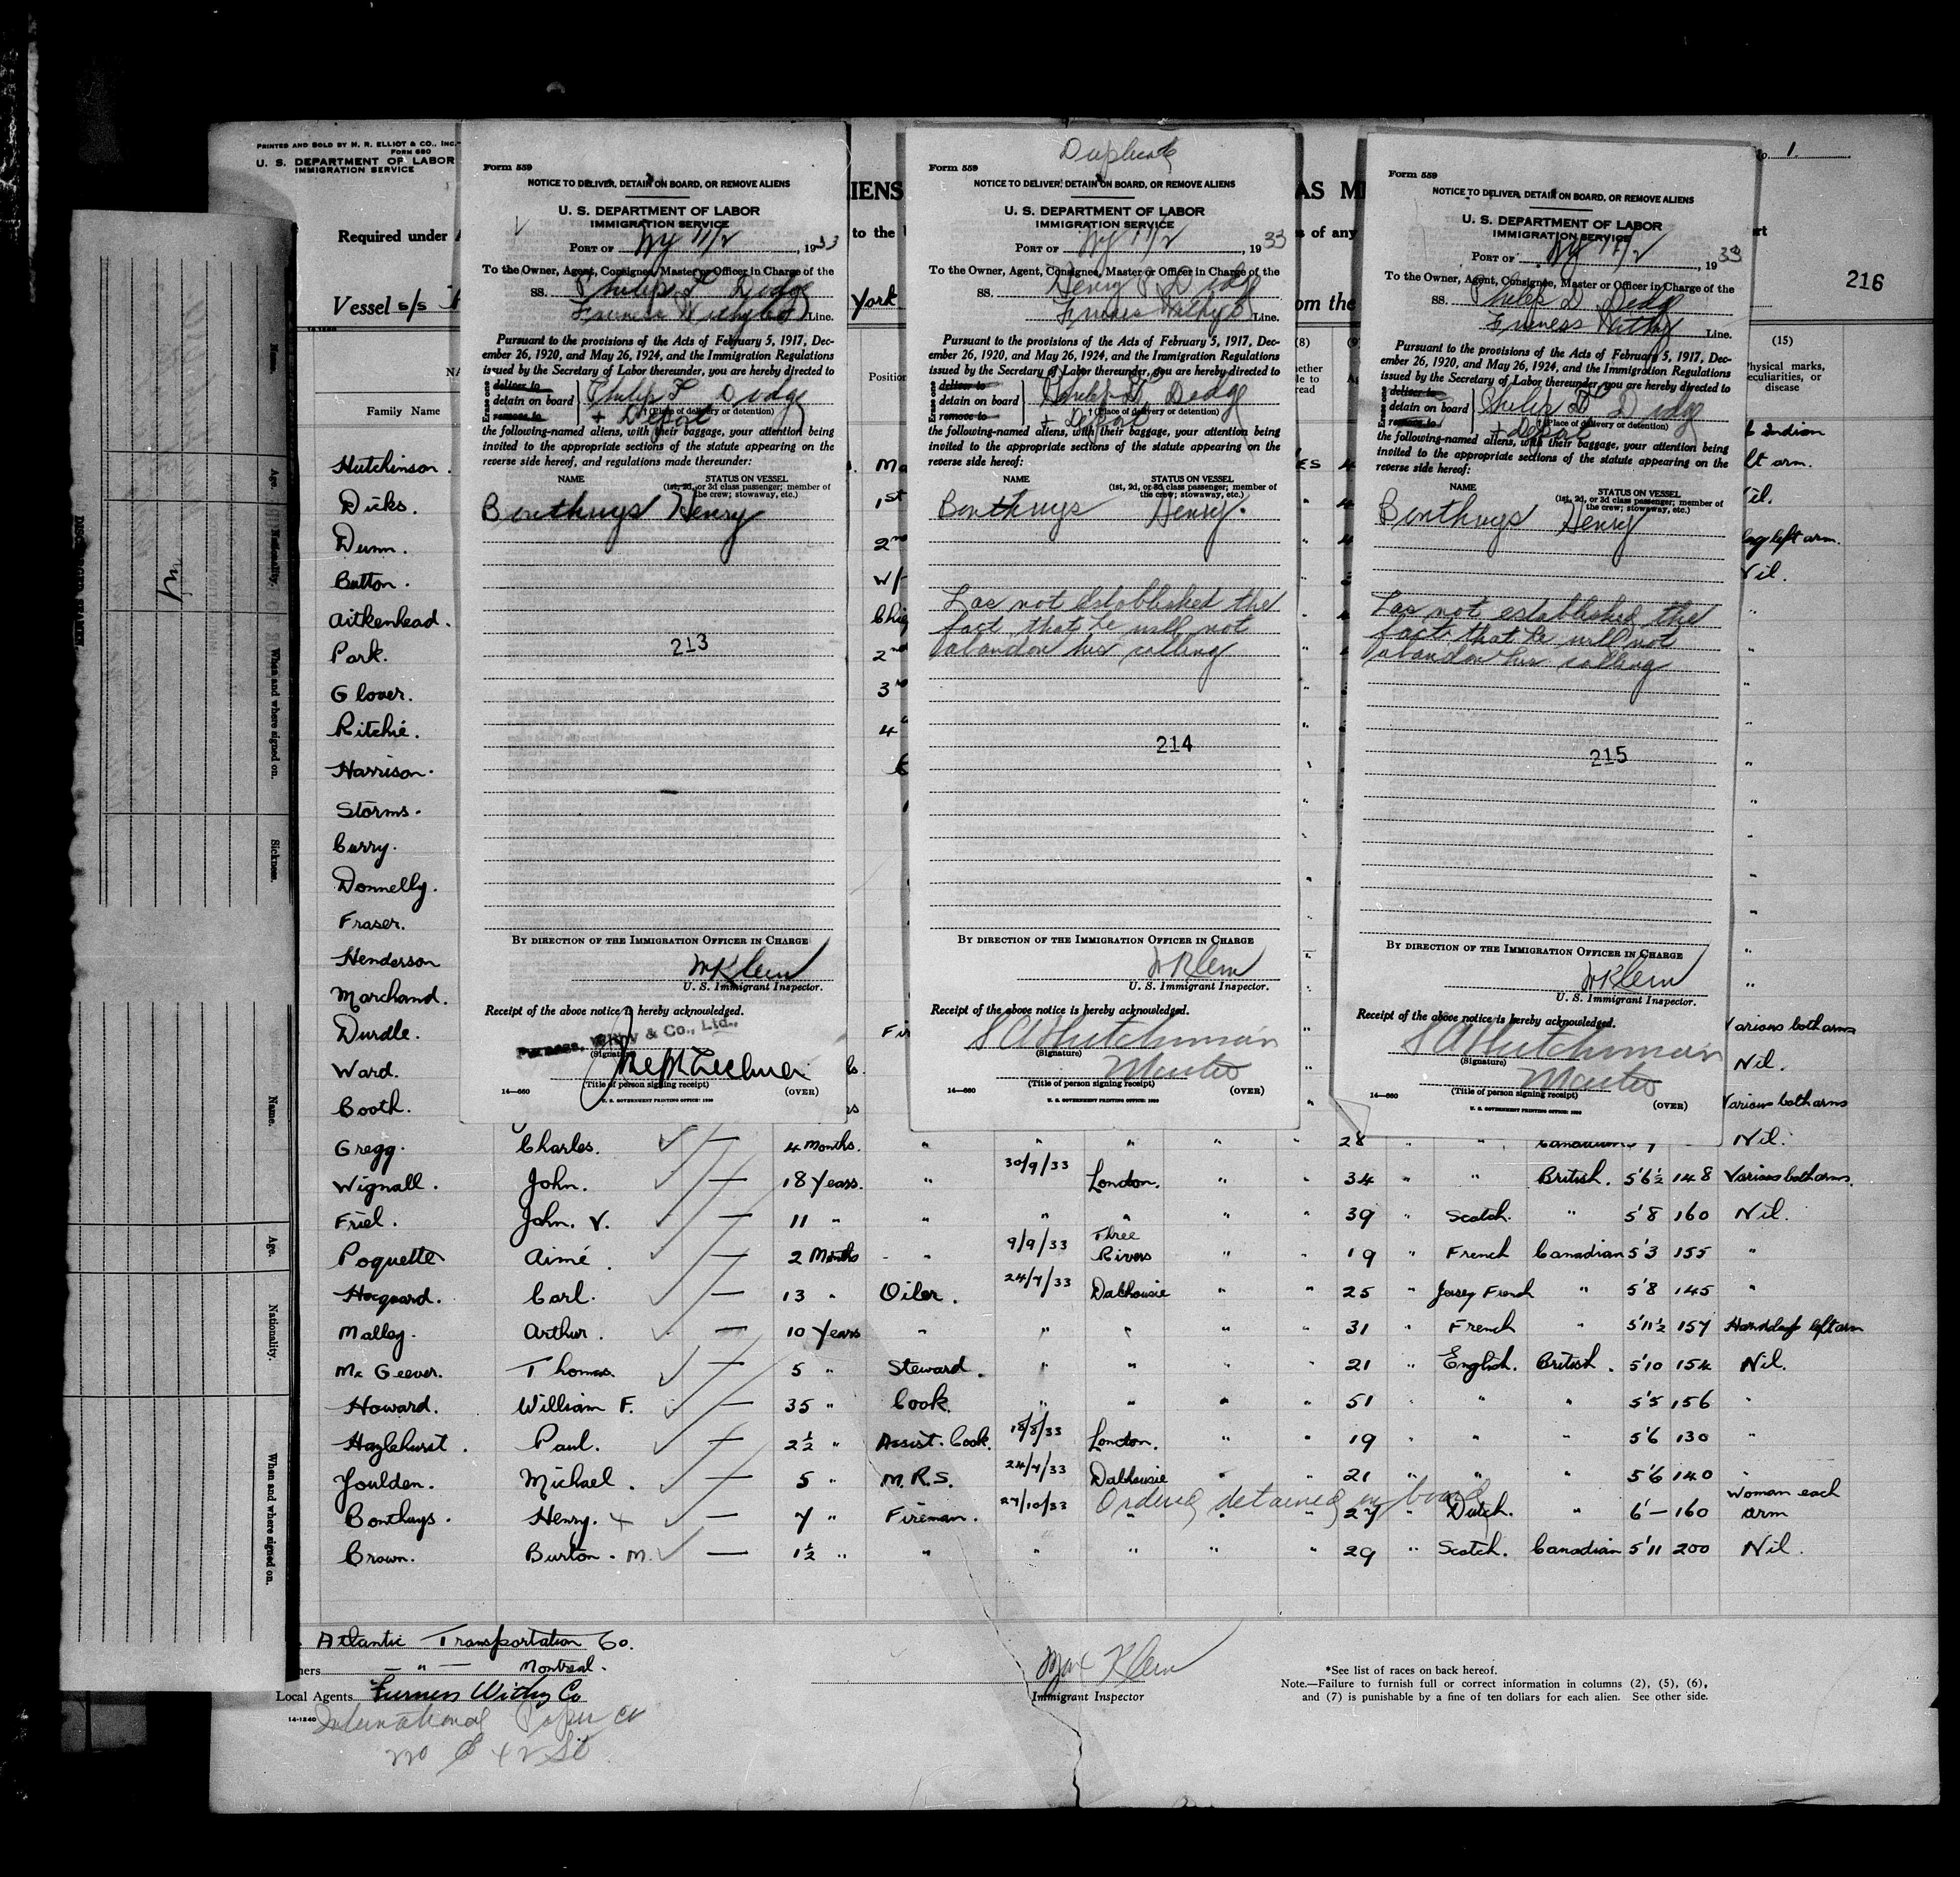 PRINTED AND SOLD BY H. R. ELLIOT & CO., INC.
FORM 680
U. S. DEPARTMENT OF LABOR
IMMIGRATION SERVICE
Required under
Vessel s/s
Family Name
Hutchinson.
Dicks.
Dunn.
Button.
Aitkenhead.
Park.
Glover.
Ritchie.
Harrison.
Storms.
Curry.
Donnelly.
Fraser.
Henderson
Marchand.
Durdle.
Ward.
Booth.
Form 559
NOTICE TO DELIVER, DETAIN ON BOARD, OR REMOVE ALIENS
U. S. DEPARTMENT OF LABOR
IMMIGRATION SERVICE
PORT OF NY 11/2, 1933
To the Owner, Agent, Consignee, Master or Officer in Charge of the
SS. Philip T Dodge
Furness Withy Line.
Pursuant to the provisions of the Acts of February 5, 1917, Dec-
ember 26, 1920, and May 26, 1924, and the Immigration Regulations
issued by the Secretary of Labor thereunder, you are hereby directed to
Erase one
deliver to
detain on board
remove to
Philip T Dodge
† (Place of delivery or detention)
+ Deport
the following-named aliens, with their baggage, your attention being
invited to the appropriate sections of the statute appearing on the
reverse side hereof, and regulations made thereunder:
NAME
STATUS ON VESSEL
(1st, 2d, or 3d class passenger; member of
the crew; stowaway, etc.)
Bonthuys Henry
213
BY DIRECTION OF THE IMMIGRATION OFFICER IN CHARGE
M Klein
U. S. Immigrant Inspector.
Receipt of the above notice is hereby acknowledged.
Furness, Withy & Co., Ltd.,
(Signature)
(Title of person signing receipt)
14—660
(OVER)
U. S. GOVERNMENT PRINTING OFFICE: 1930
IENS
to the
York
Position
Ma
1st
2nd
W/
Chie
2nd
3rd
4
Fir
Duplicate
Form 559
NOTICE TO DELIVER, DETAIN ON BOARD, OR REMOVE ALIENS
U. S. DEPARTMENT OF LABOR
IMMIGRATION SERVICE
PORT OF NY 11/2 1933
To the Owner, Agent, Consignee, Master or Officer in Charge of the
SS. Henry P D Dodge
Furness Withy Line.
Pursuant to the provisions of the Acts of February 5, 1917, Dec-
ember 26, 1920, and May 26, 1924, and the Immigration Regulations
issued by the Secretary of Labor thereunder, you are hereby directed to
Erase one
deliver to
detain on board
remove to
Philip T Dodge
† (Place of delivery or detention)
+ Deport
the following-named aliens, with their baggage, your attention being
invited to the appropriate sections of the statute appearing on the
reverse side hereof:
NAME
STATUS ON VESSEL
(1st, 2d, or 3d class passenger; member of
the crew; stowaway, etc.)
Bonthuys Henry.
Has not established the
fact that he will not
abandon his calling
214
BY DIRECTION OF THE IMMIGRATION OFFICER IN CHARGE
M Klein
U. S. Immigrant Inspector.
Receipt of the above notice is hereby acknowledged.
S A Hutchinson
(Signature)
Master
(Title of person signing receipt)
14—660
(OVER)
U. S. GOVERNMENT PRINTING OFFICE: 1930
AS M
s of any
om the
Form 559
NOTICE TO DELIVER, DETAIN ON BOARD, OR REMOVE ALIENS
U. S. DEPARTMENT OF LABOR
IMMIGRATION SERVICE
PORT OF NY 11/2, 1933
To the Owner, Agent, Consignee, Master or Officer in Charge of the
SS. Philip D Dodge
Furness Withy Line.
Pursuant to the provisions of the Acts of February 5, 1917, Dec-
ember 26, 1920, and May 26, 1924, and the Immigration Regulations
issued by the Secretary of Labor thereunder, you are hereby directed to
Erase one
deliver to
detain on board
remove to
Philip T Dodge
† (Place of delivery or detention)
+ Deport
the following-named aliens, with their baggage, your attention being
invited to the appropriate sections of the statute appearing on the
reverse side hereof:
NAME
STATUS ON VESSEL
(1st, 2d, or 3d class passenger; member of
the crew; stowaway, etc.)
Bonthuys Henry
Has not established the
fact that he will not
abandon his calling
215
BY DIRECTION OF THE IMMIGRATION OFFICER IN CHARGE
M Klein
U. S. Immigrant Inspector.
Receipt of the above notice is hereby acknowledged.
S A Hutchinson
(Signature)
Master
(Title of person signing receipt)
14—660
(OVER)
U. S. GOVERNMENT PRINTING OFFICE: 1930
1.
216
(15)
Physical marks,
peculiarities, or
disease
Indian
lt arm.
Nil.
left arm.
Nil.
Various both arms
Nil.
Various both arms
Gregg. Charles. — 4 Months. " " " " " 28 " " Canadian Nil.
Wignall. John. — 18 Years. " 30/9/33 London. " " 34 " " British. 5'6½ 148 Various both arms.
Friel. John. V. — 11 " " " " " " 39 " Scotch. " 5'8 160 Nil.
Poquette Aimé. — 2 Months " 9/9/33 Three Rivers " " 19 " French Canadian 5'3 155 "
Hacquard. Carl. — 13 " Oiler. 24/7/33 Dalhousie " " 25 " Jersey French " 5'8 145 "
Malley. Arthur. — 10 Years " " " " " 31 " French " 5'11½ 157 left arm
Mc Geever. Thomas. — 5 " Steward. " " " " 21 " English. British. 5'10 154 Nil.
Howard. William F. — 35 " Cook. " " " " 51 " " " 5'5 156 "
Hazlehurst. Paul. — 2½ " Assist. Cook. 18/8/33 London. " " 19 " " " 5'6 130 "
Youlden. Michael. — 5 " M.R.S. 24/7/33 Dalhousie " " 21 " " " 5'6 140 "
Ordered detained on board
Bonthuys. Henry. x — 7 " Fireman. 27/10/33 " " " 27 " Dutch. " 6'— 160 Woman each arm
Brown. Burton. M. — 1½ " " " " " " 29 " Scotch. Canadian 5'11 200 Nil.
Atlantic Transportation Co.
ners — " — Montreal.
Local Agents Furness Withy Co
14-1240
International Paper Co
Max Klein
Immigrant Inspector
*See list of races on back hereof.
Note.—Failure to furnish full or correct information in columns (2), (5), (6),
and (7) is punishable by a fine of ten dollars for each alien. See other side.
Name.
Age.
Nationality.
When and where signed on.
Sickness.
Name.
Age.
Nationality.
When and where signed on.